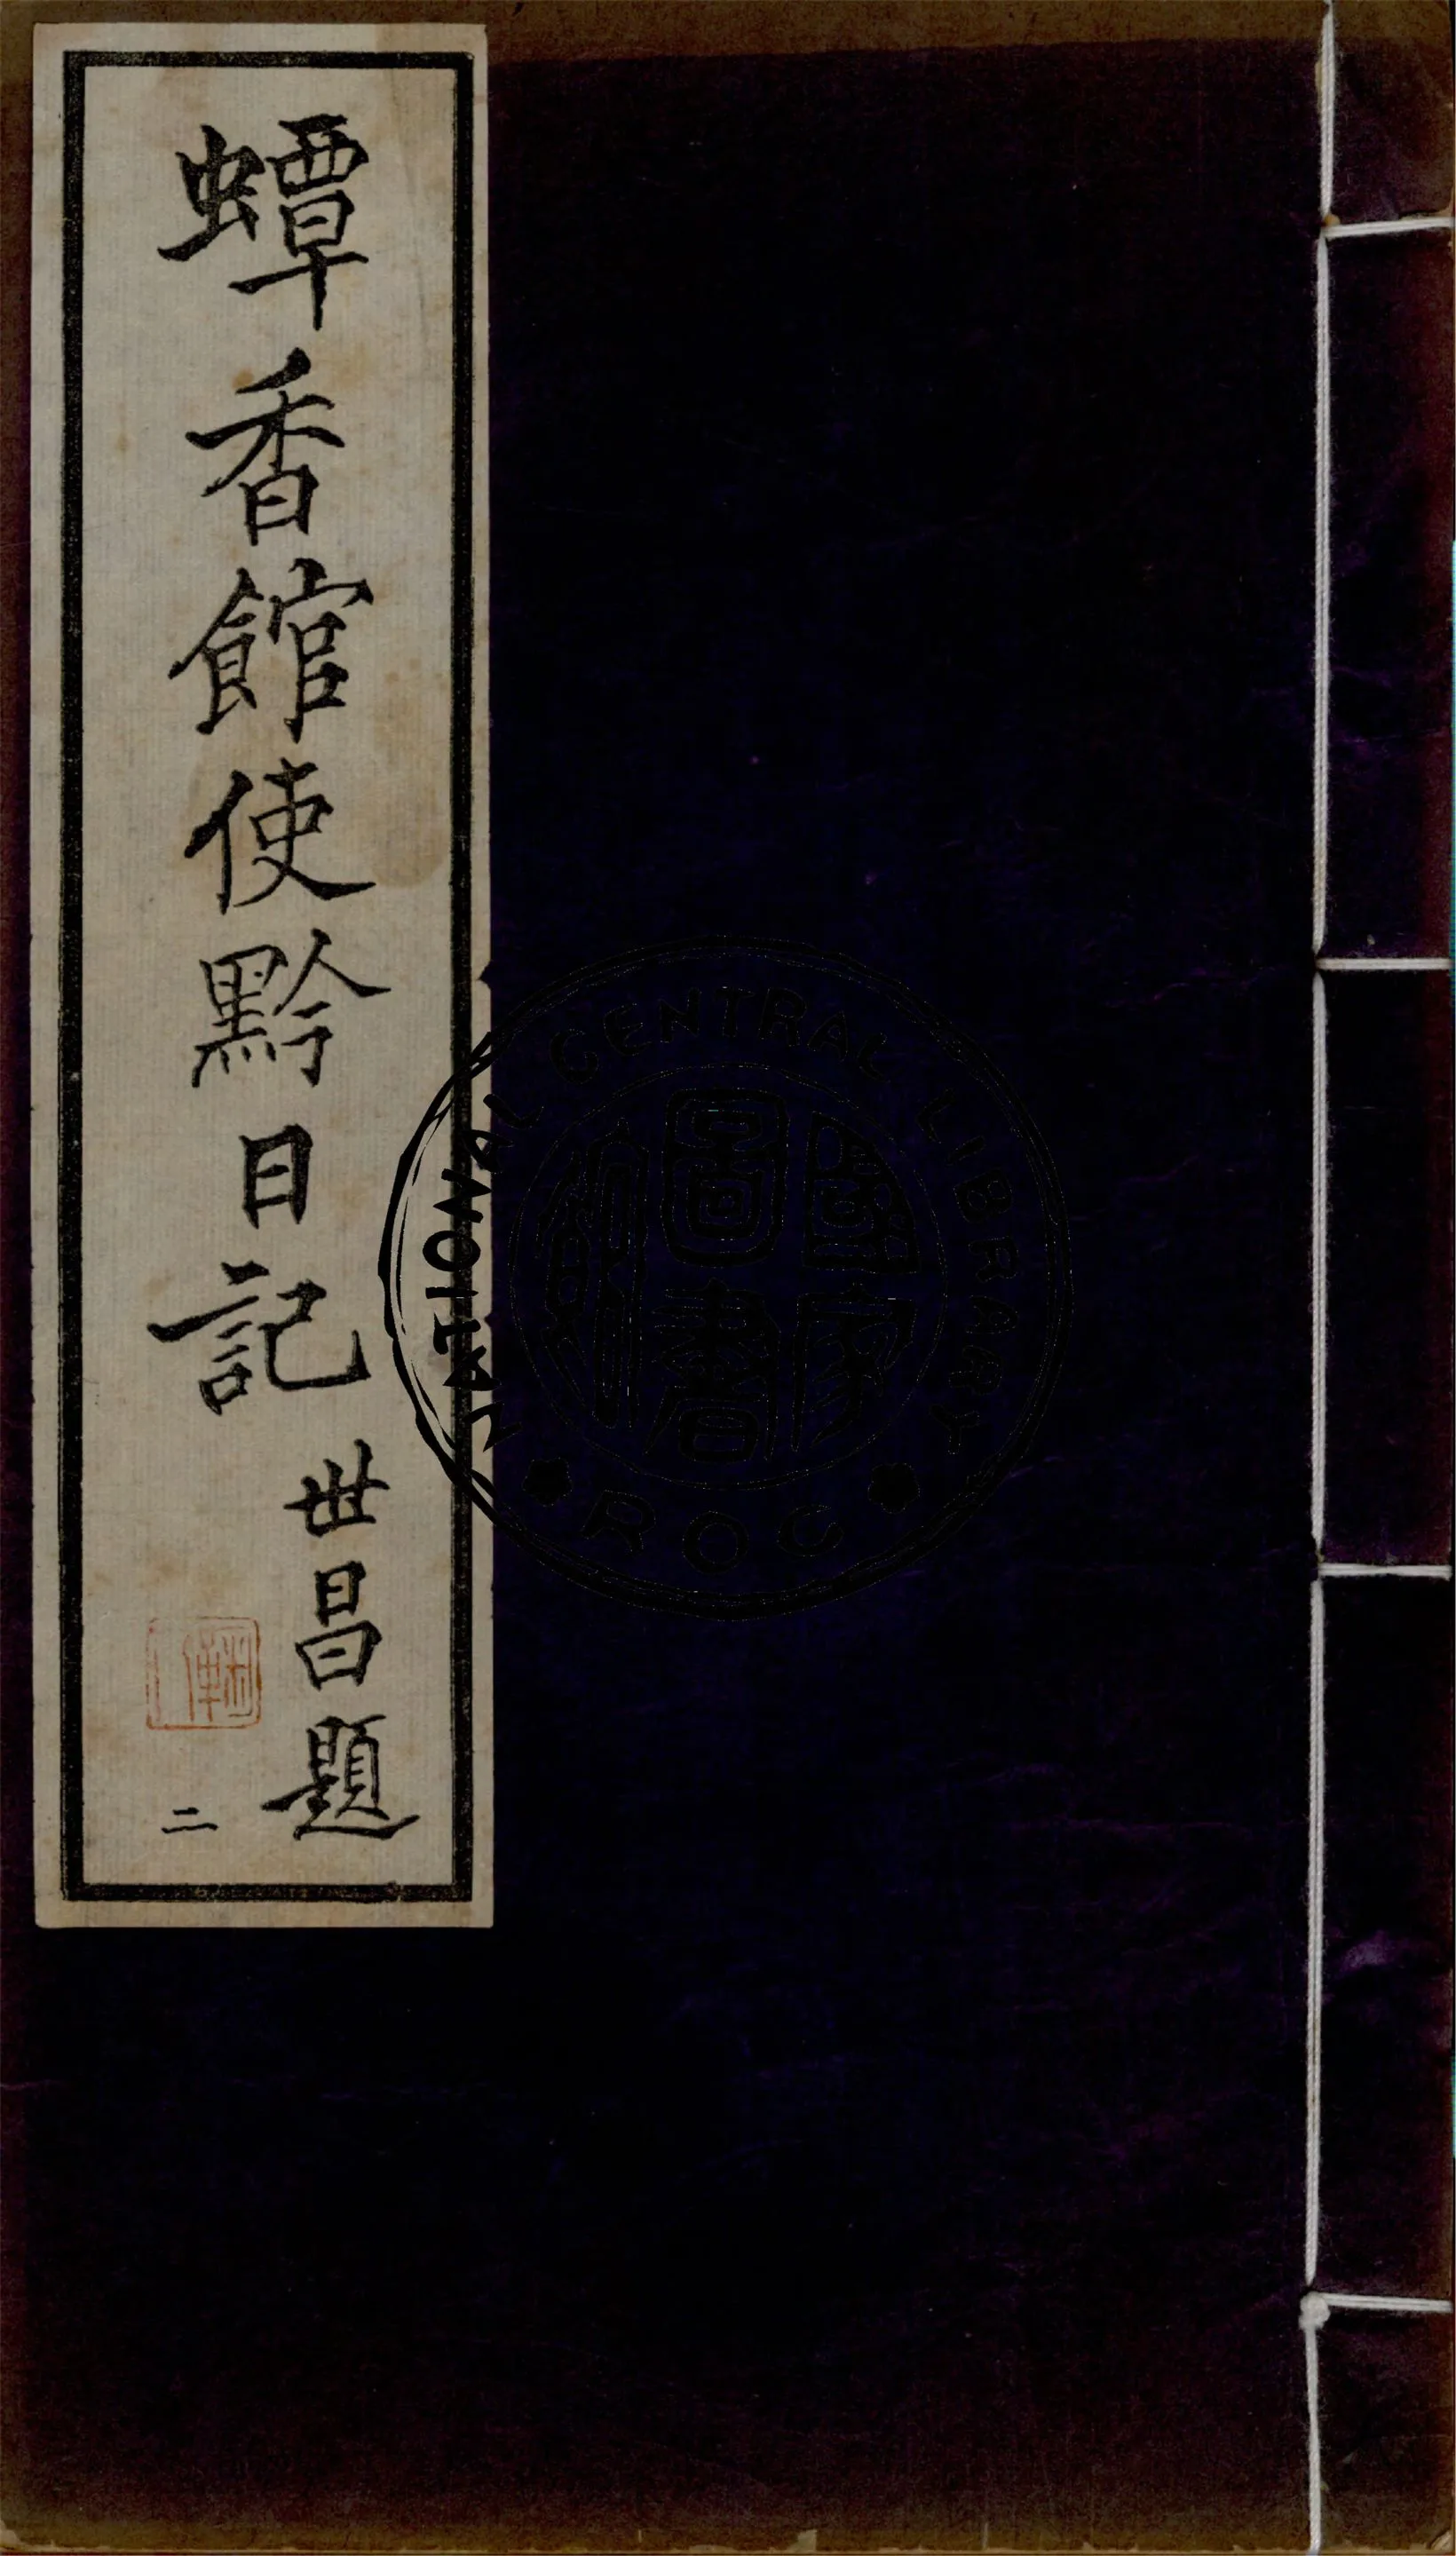 蟫香館使黔日記
世昌題
二
NATIONAL CENTRAL LIBRARY
國家
圖書
館
ROC